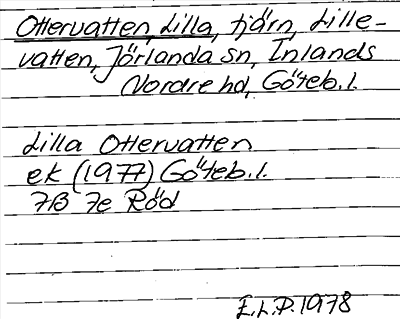 Ottervatten, Lilla, tjärn, Lille-
vatten, Jörlanda sn, Inlands
Nordre hd, Göteb.l.
Lilla Ottervatten
ek (1977) Göteb.l.
7B 7e Röd
E.L.P. 1978